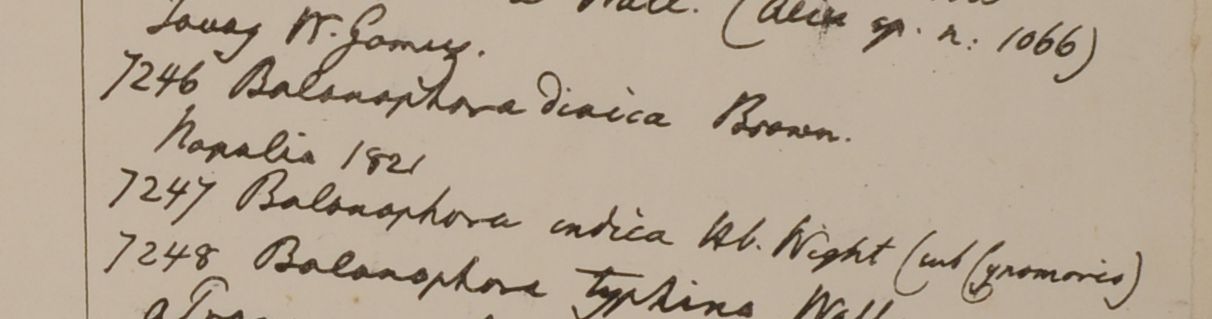 Wall. (Alia sp. n: 1066)
Tavoy W. Gomez.
7246 Balanophora dioica Brown.
Napalia 1821
7247 Balanophora indica Hb. Wight (sub Cynomorio)
7248 Balanophora typhina Wall